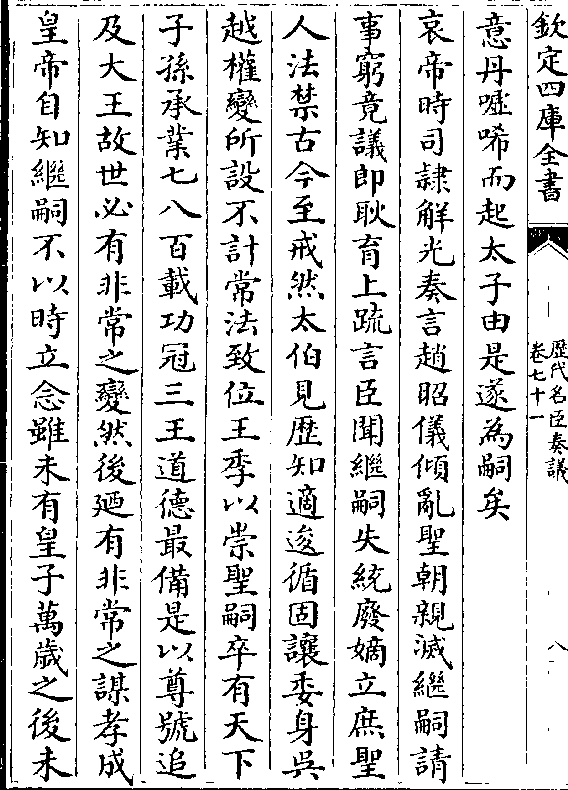 欽定四庫全書
歷代名臣奏議
卷七十一
八
意丹噓唏而起太子由是遂為嗣矣
哀帝時司隷解光奏言趙昭儀傾亂聖朝親滅繼嗣請
事窮竟議郎耿育上疏言臣聞繼嗣失統廢嫡立庶聖
人法禁古今至戒然太伯見歴知適逡循固讓委身吳
越權變所設不計常法致位王季以崇聖嗣卒有天下
子孫承業七八百載功冠三王道德最備是以尊號追
及大王故世必有非常之變然後廼有非常之謀孝成
皇帝自知繼嗣不以時立念雖未有皇子萬歲之後未